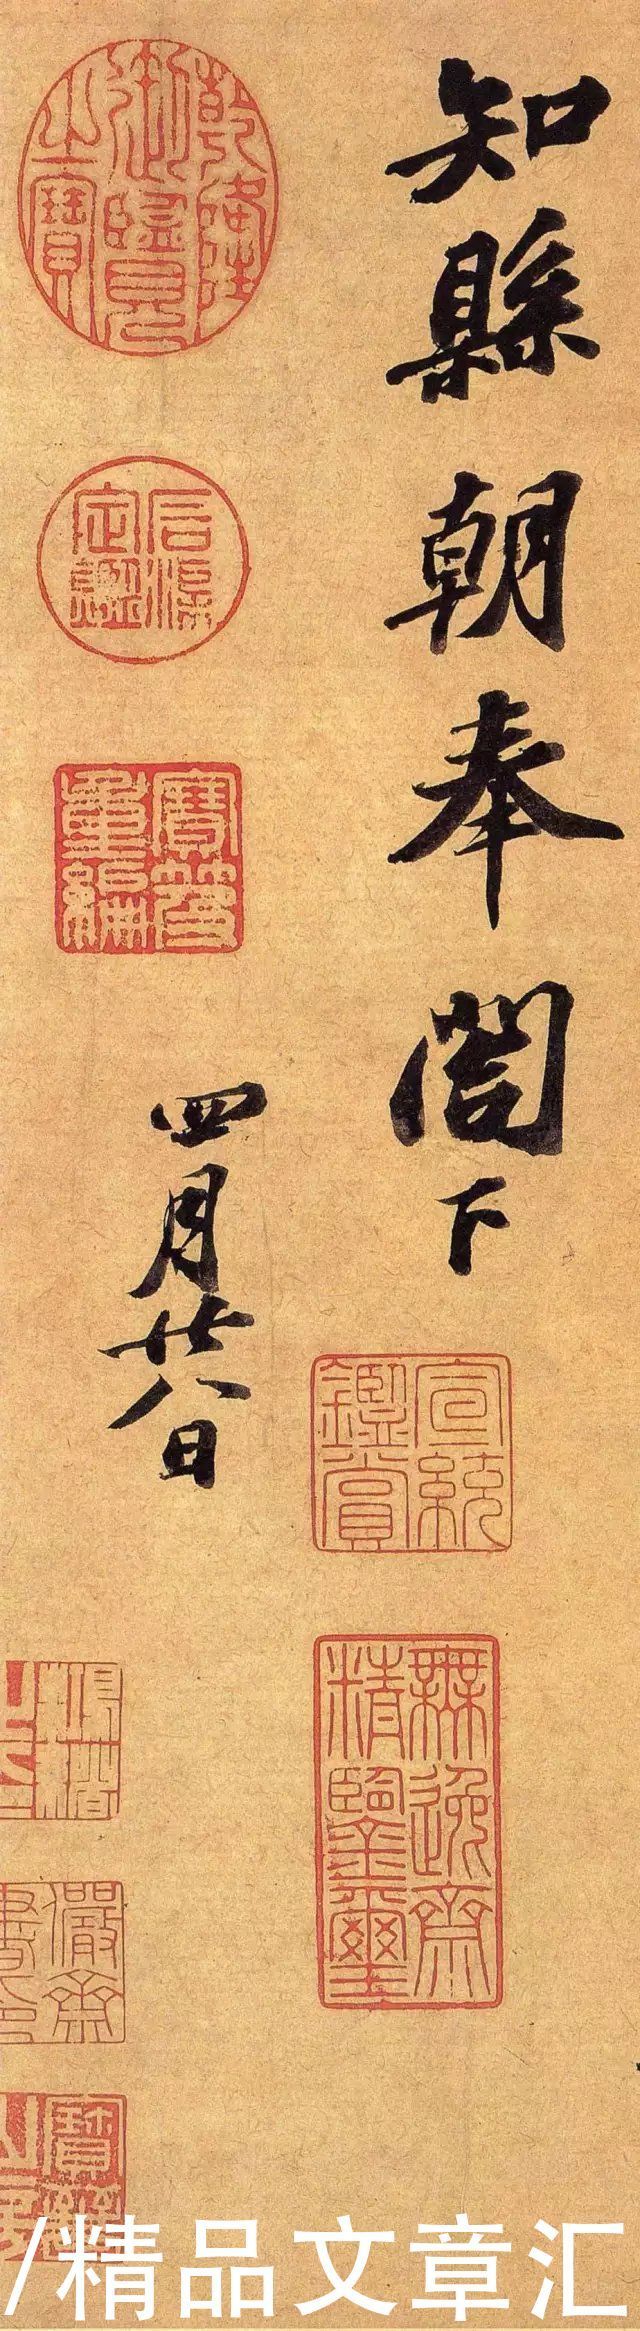 知縣朝奉閤下
宣統鑑賞
無逸齋精鑒璽
四月廿八日
乾隆御覽之寶
石渠定鑑
寶笈重編
儼齋
/精品文章汇